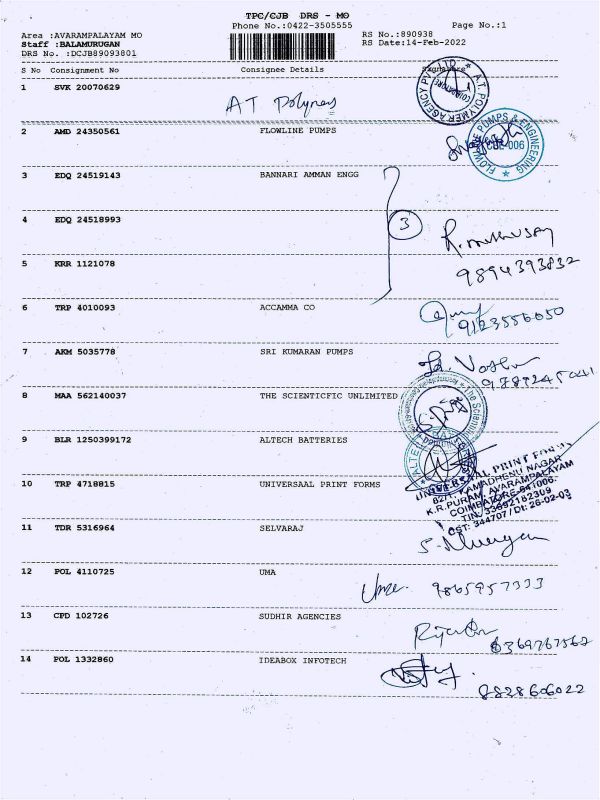 TPC/CJB DRS - MO
Phone No.:0422-3505555 Page No.:1
Area :AVARAMPALAYAM MO RS No.:890938
Staff :BALAMURUGAN RS Date:14-Feb-2022
DRS No. :DCJB89093801
S No Consignment No Consignee Details Signature
1 SVK 20070629 AT Polymers
2 AMD 24350561 FLOWLINE PUMPS
FLOWLINE PUMPS & ENGINEERING
CBE-006
3 EDQ 24519143 BANNARI AMMAN ENGG
3
4 EDQ 24518993
5 KRR 1121078
9894393832
6 TRP 4010093 ACCAMMA CO
9123556050
7 AKM 5035778 SRI KUMARAN PUMPS
8 MAA 562140037 THE SCIENTICFIC UNLIMITED
9 BLR 1250399172 ALTECH BATTERIES
10 TRP 4718815 UNIVERSAAL PRINT FORMS
UNIVERSAAL PRINT FORMS
82/1, KAMADHENU NAGAR
K.R.PURAM, AVARAMPALAYAM
COIMBATORE-641006.
TIN: 33692182309
CST: 344707 / Dt: 26-02-03
11 TDR 5316964 SELVARAJ
12 POL 4110725 UMA
Uma 9865957333
13 CPD 102726 SUDHIR AGENCIES
14 POL 1332860 IDEABOX INFOTECH
8828606022